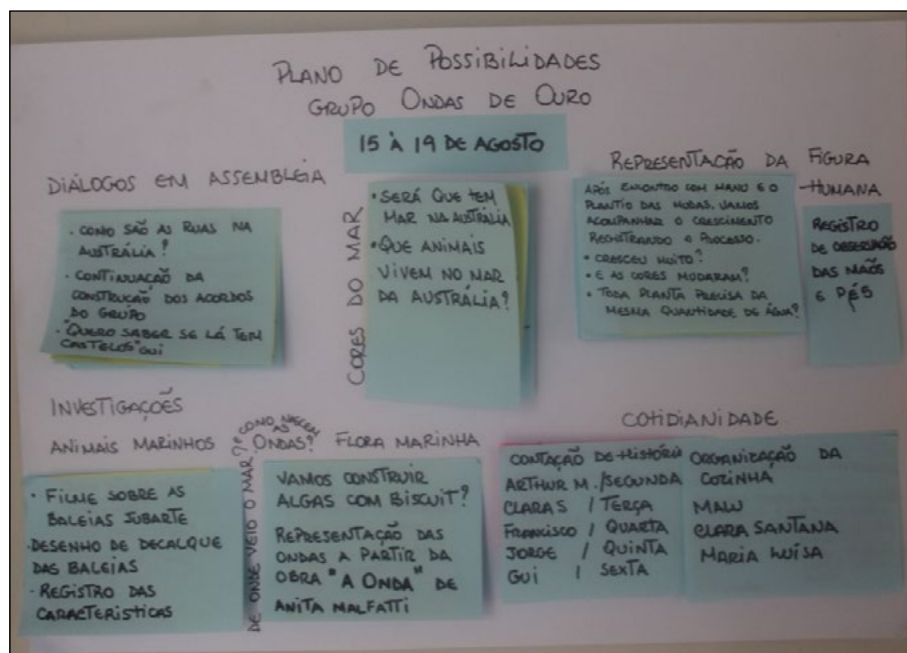 PLANO DE POSSIBILIDADES
GRUPO ONDAS DE OURO
15 À 19 DE AGOSTO
DIÁLOGOS EM ASSEMBLEIA
• COMO SÃO AS RUAS NA
AUSTRÁLIA?
• CONTINUAÇÃO DA
CONSTRUÇÃO DOS ACORDOS
DO GRUPO
• "QUERO SABER SE LÁ TEM
CASTELOS" GUI
CORES DO MAR
• SERÁ QUE TEM
MAR NA AUSTRÁLIA
• QUE ANIMAIS
VIVEM NO MAR
DA AUSTRÁLIA?
REPRESENTAÇÃO DA FIGURA
HUMANA
APÓS ENCONTRO COM MANU E O
PLANTIO DAS MUDAS. VAMOS
ACOMPANHAR O CRESCIMENTO
REGISTRANDO O PROCESSO.
• CRESCEU MUITO?
• E AS CORES MUDARAM?
• TODA PLANTA PRECISA DA
MESMA QUANTIDADE DE ÁGUA?
REGISTRO
DE OBSERVAÇÃO
DAS MÃOS
E PÉS
INVESTIGAÇÕES
ANIMAIS MARINHOS
• FILME SOBRE AS
BALEIAS JUBARTE
• DESENHO DE DECALQUE
DAS BALEIAS
• REGISTRO DAS
CARACTERISTICAS
DE ONDE VEIO O MAR?
COMO NASCEM
AS ONDAS?
FLORA MARINHA
VAMOS CONSTRUIR
ALGAS COM BISCUIT?
REPRESENTAÇÃO DAS
ONDAS A PARTIR DA
OBRA "A ONDA" DE
ANITA MALFATTI
COTIDIANIDADE
CONTAÇÃO DE HISTÓRIA
ARTHUR M. / SEGUNDA
CLARA S / TERÇA
FRANCISCO / QUARTA
JORGE / QUINTA
GUI / SEXTA
ORGANIZAÇÃO DA
COZINHA
MALU
CLARA SANTANA
MARIA LUÍSA